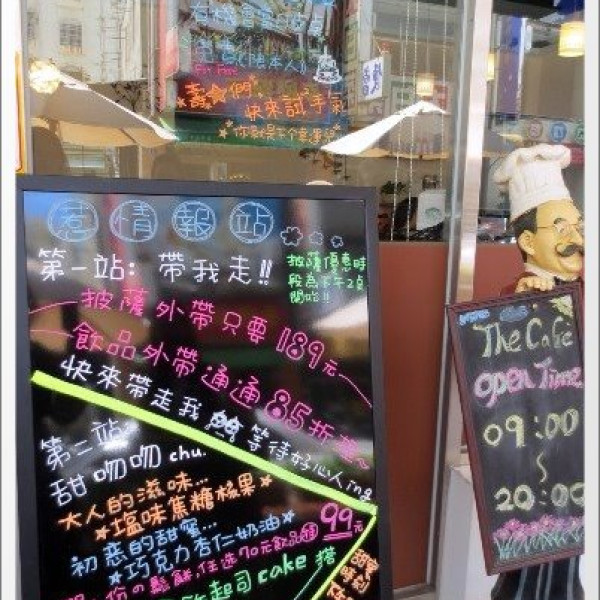 For Free
壽星們,
快來試手氣
惹情報站
第一站: 帶我走!!
披薩優惠時
段為下午2點
開始!!
披薩外帶只要189元
飲品外帶通通85折
快來帶走我 等待好心人ing
第二站~
甜吻吻chu.
大人的滋味...
★塩味焦糖榛果★
初惡的甜蜜...
★巧克力杏仁奶油★
份の鬆餅,任選70元飲品 99元
起司cake
甜蜜
時刻
The Café
open Time
09:00
~
20:00